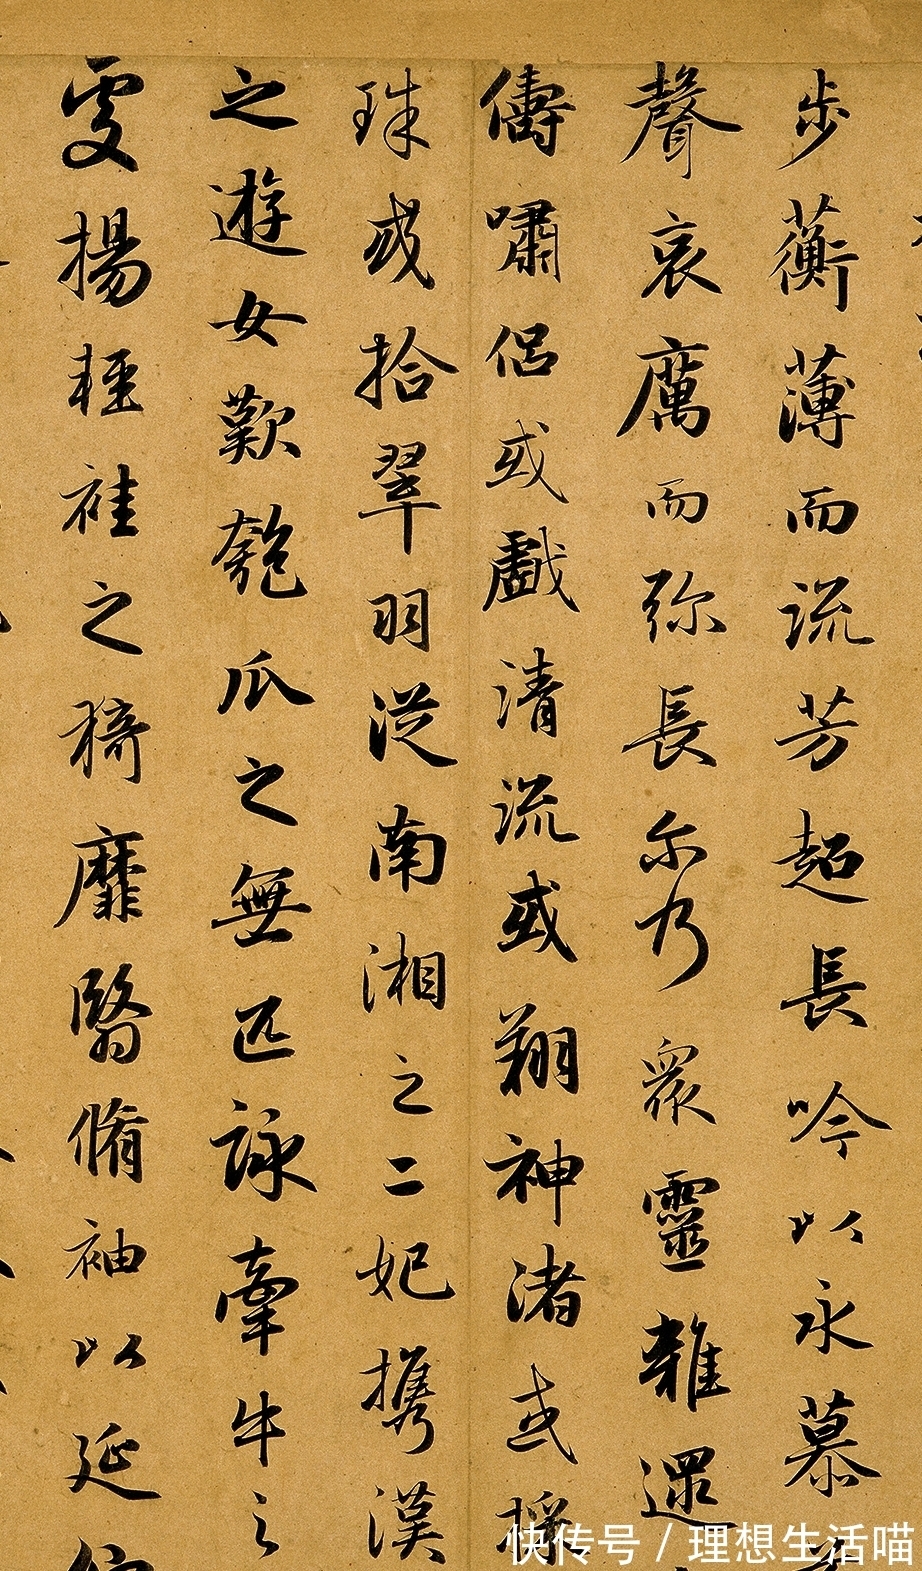 步蘅薄而流芳超長吟以永慕
聲哀厲而弥長尔乃衆靈雜遝
儔嘯侶或戲清流或翔神渚或採
珠或拾翠羽從南湘之二妃携漢
之遊女歎匏瓜之無匹詠牽牛之
處揚輕袿之猗靡翳脩袖以延
快传号 / 理想生活喵